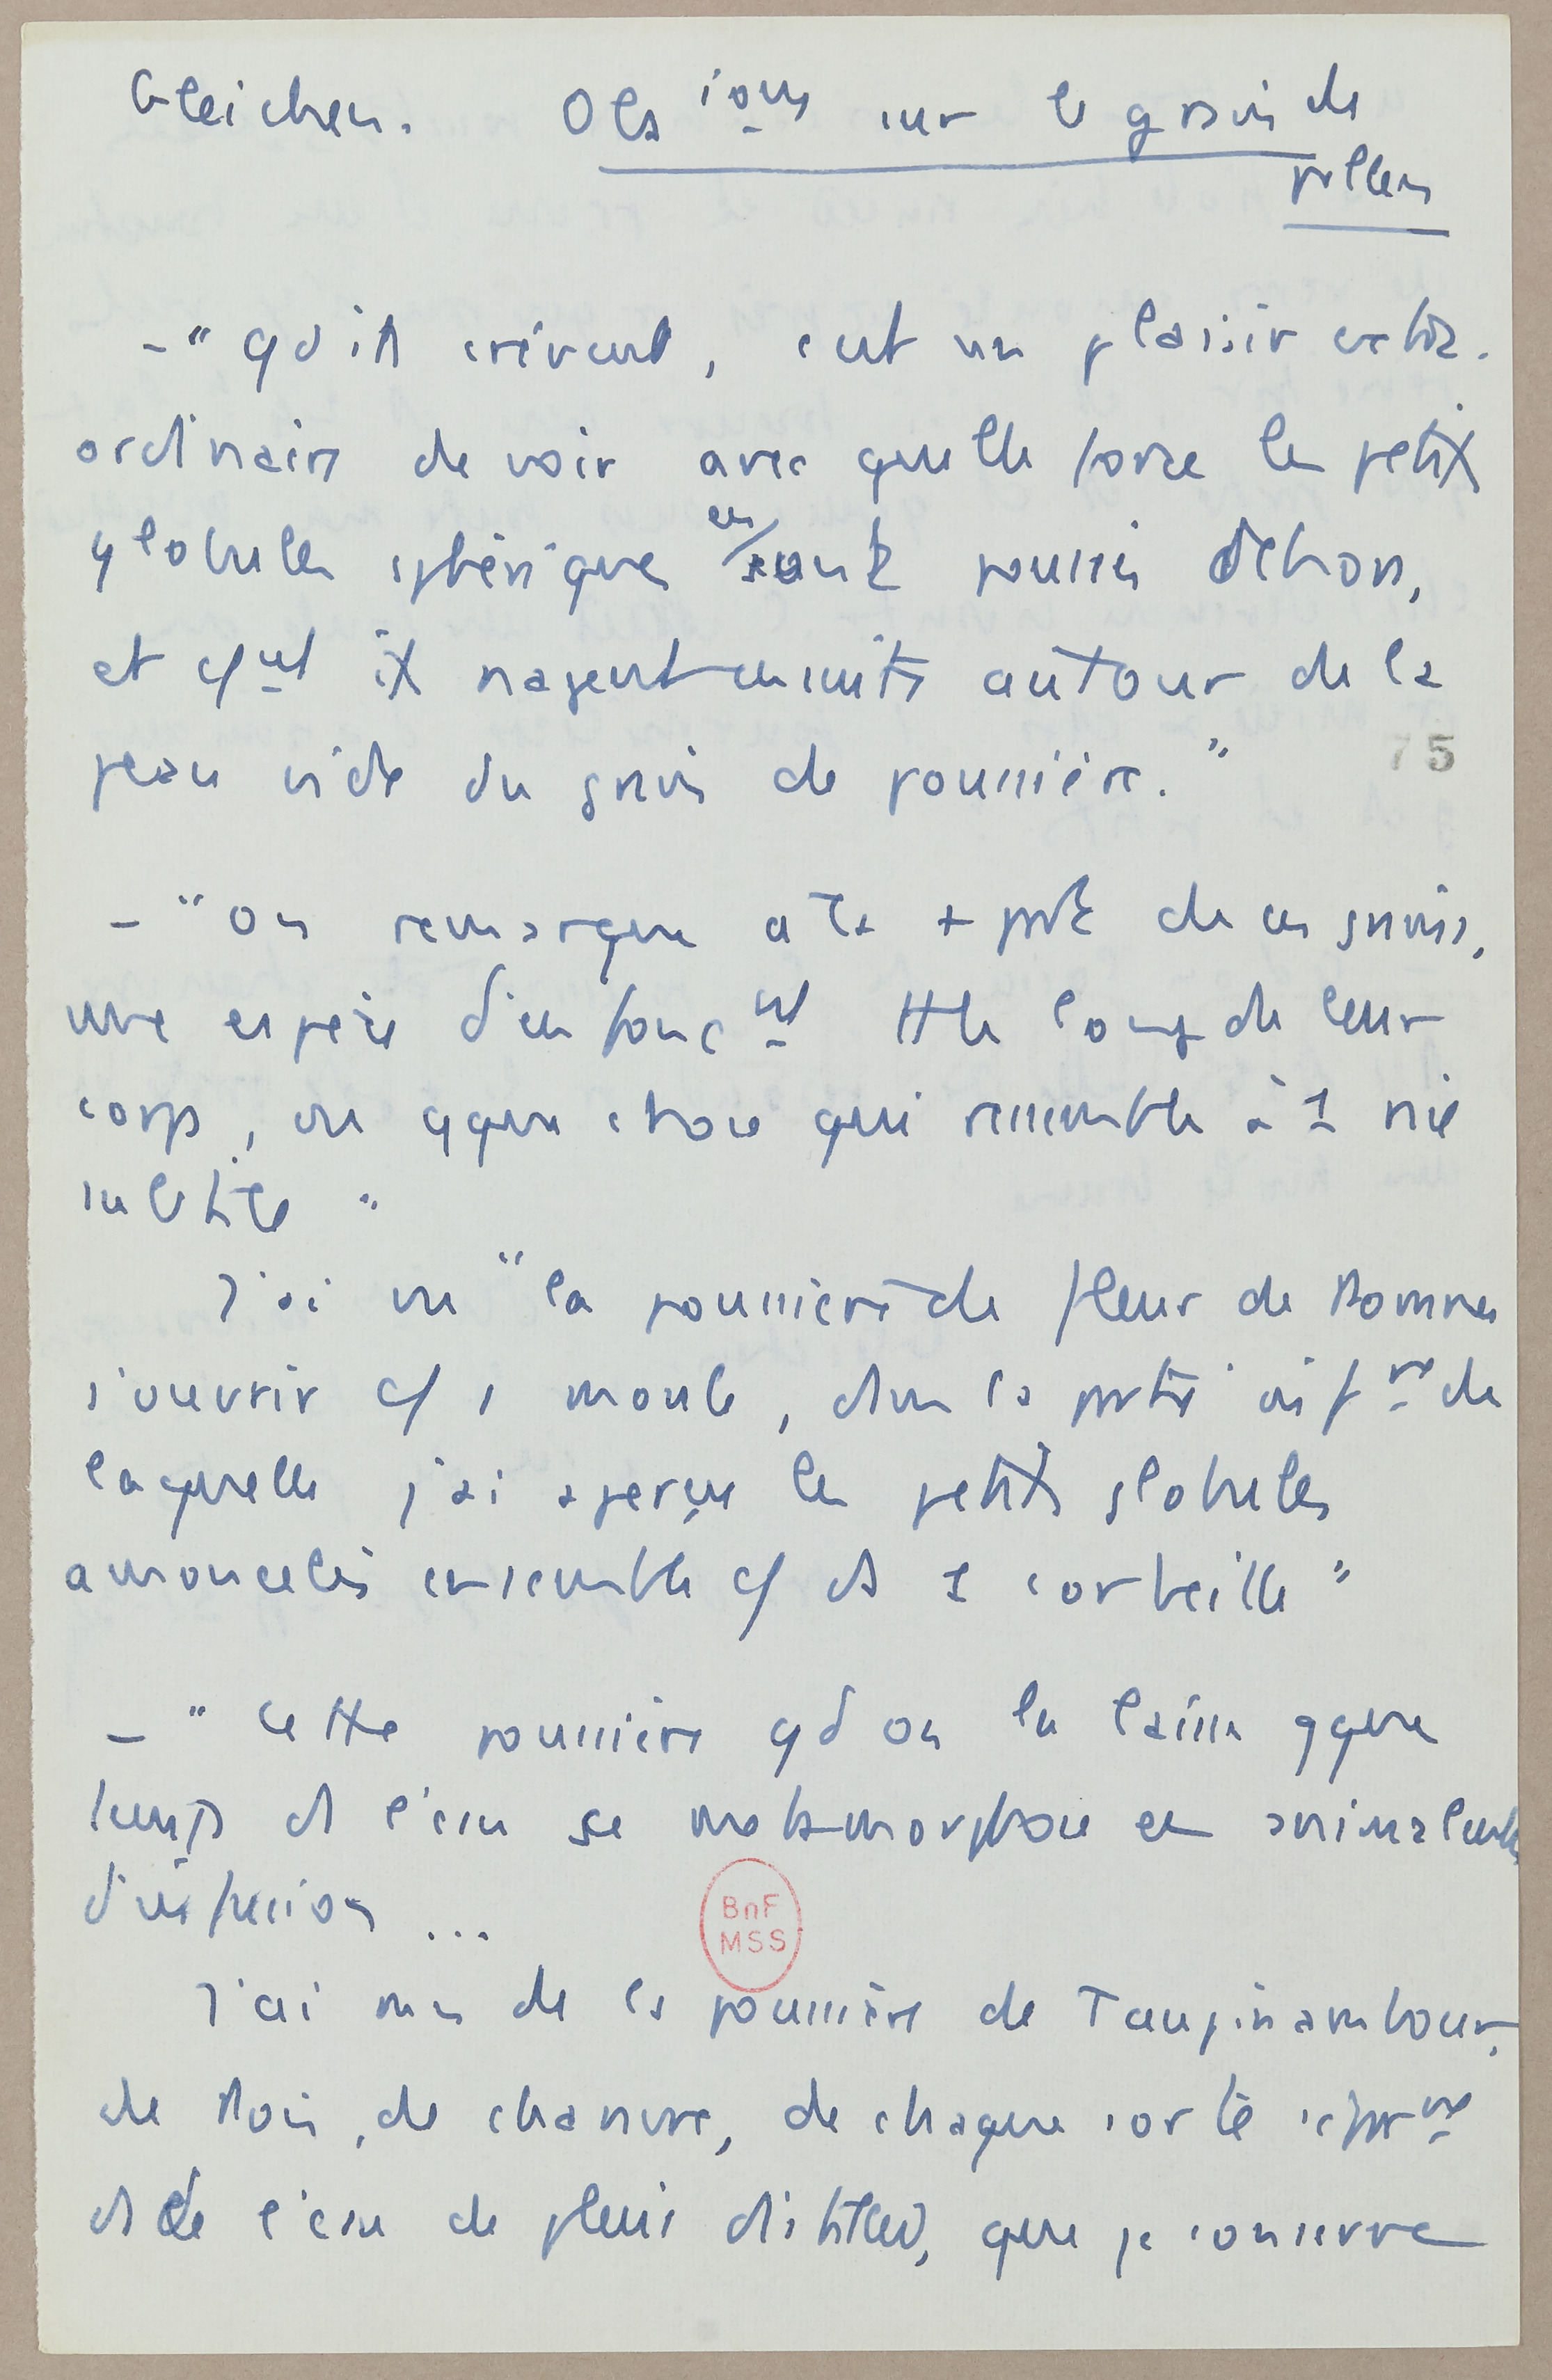 Gleichen. Obsions sur le grain de
pollen
- "qd ils crèvent, c'est un plaisir extra-
ordinaire de voir avec quelle force les petits
globules sphériques en sont poussés dehors,
et cment ils nagent ensuite autour de la
peau vide du grain de poussière."
75
- "on remarque à la + part de ces grains,
une espèce d'enfoncmt tt le long de leur
corps, ou qque chose qui ressemble à 1 raie
subtile"
J'ai vu "la poussière de fleur de
s'ouvrir c/ 1 moule, dans la partie infre de
laquelle j'ai aperçu les petits globules
amoncelés ensemble c/ ds 1 corbeille"
- "Cette poussière qd on la laisse qque
temps ds l'eau se métamorphose en animalcules
d'infusion ...
J'ai mis de la poussière de Taupinambour,
de pois, de chanvre, de chaque sorte
ds de l'eau de pluie distillée, que je conserve
BnF
MSS